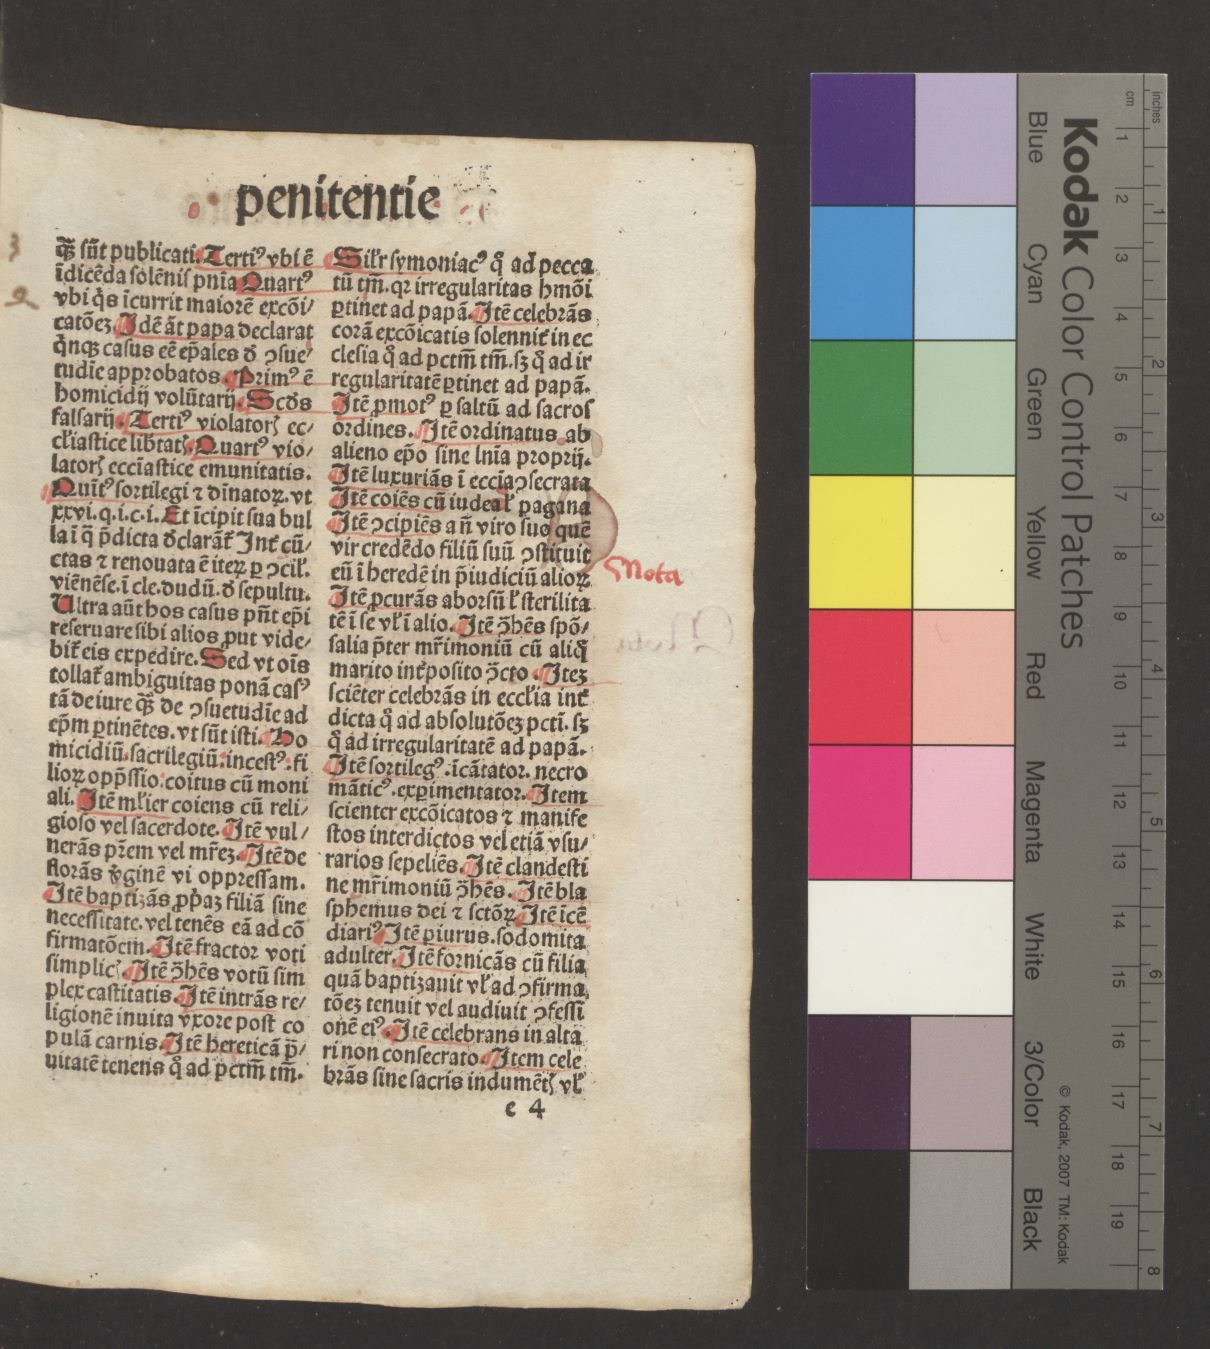 penitentie
q̄ſ sūt publicati. Tertiꝰ vbi ē
īdicēda solēnis pn̄ia Quartꝰ
vbi q̇s īcurrit maiorē excōi/
catōeꝫ. Idē āt papa declarat
q̇nqꝫ casus eē ep̄ales ꝺ̄ ꝯsue/
tudīe approbatos. Primꝰ ē
homicidij volūtarij. Scd̄s
falsarij. Tertiꝰ violatorꝭ ec/
cl̄iastice lib̄tatꝭ. Quartꝰ vio/
latorꝭ eccīastice emunitatis.
Quīt9 sortilegi ⁊ dīnatoꝝ. vt
xxvi. q. i. c. i. Et īcipit sua bul
la ī q̄ p̄dicta ꝺ̄clarāt̄ Int̄ cū/
ctas ⁊ renouata ē iteꝝ ꝑ ꝯcil̄.
viēnēse. ī cle. dudū. ꝺ̄ sepultu.
Ultra aūt hos casus pn̄t ep̄i
reseruare sibi alios ꝓut vide/
bit̄ eis expedire. Sed vt oīs
tollat̄ ambiguitas ponā casꝰ
tā de iure q̄ſ de ꝯsuetudīe ad
ep̄m ꝑtinētes. vt sūt isti. Ho
micidiū. sacrilegiū: incestꝰ. fi
lioꝝ opp̄ssio: coitus cū moni
ali. Itē ml̄ier coiens cū reli/
gioso vel sacerdote. Itē vul/
nerās pr̄em vel mr̄eꝫ. Itē de
florās v̄ginē vi oppressam.
Itē baptiꝫās ꝓpaꝫ filiā sine
necessitate. vel tenēs eā ad cō
firmatōem. Itē fractor voti
simplicꝭ. Itē ꝯ̄hēs votū sim
plex castitatis. Itē intrās re/
ligionē inuita vxore post co
pulā carnis. Itē hereticā p̄/
uitatē tenens q̄ ad pctm̄ tm̄.
Sil̄r symoniacꝰ q̄ ad pecca
tū tm̄. qꝛ irregularitas hmōi
ꝑtinet ad papā. Itē celebrās
corā excōicatis solennit̄ in ec
clesia q̄ ad pctm̄ tm̄. sꝫ q̄ ad ir
regularitatē ꝑtinet ad papā.
Itē ꝓmotꝰ ꝑ saltū ad sacros
ordines. Itē ordinatus ab
alieno ep̄o sine lnīa proprij.
Itē luxuriās ī ecciā ꝯsecrata
Itē coiēs cū iudea l̄ pagana
Itē ꝯcipiēs a ñ viro suo quē
vir credēdo filiū suū ꝯstituit
eū ī heredē in p̄iudiciū alioꝝ
Itē ꝓcurās aborsū l̄ sterilita
tē ī se vl̄ ī alio. Itē ꝯ̄hēs spō/
salia p̄ter mr̄imoniū cū aliq̄
marito int̄posito ꝯ̄cto. Iteꝫ
sciēter celebrās in eccl̄ia int̄
dicta q̄ ad absolutōeꝫ pcti. sꝫ
q̄ ad irregularitatē ad papā.
Itē sortilegꝰ. īcātator. necro
māticꝰ. exꝑimentator. Item
scienter excōicatos ⁊ manife
stos interdictos vel etiā vsu/
rarios sepeliēs. Itē clandesti
ne mr̄imoniū ꝯ̄hēs. Itē bla
sphemus dei ⁊ sctōꝝ. Itē īcē
diariꝰ. Itē ꝑiurus. sodomita
adulter. Itē fornicās cū filia
quā baptiꝫauit vl̄ ad ꝯfirma
tōeꝫ tenuit vel audiuit ꝯfessi
onē eiꝰ. Itē celebrans in alta
ri non consecrato. Item cele
brās sine sacris indumētꝭ vl̄
e 4
Nota
Kodak Color Control Patches
© Kodak, 2007 TM: Kodak
Blue
Cyan
Green
Yellow
Red
Magenta
White
3/Color
Black
cm
1 2 3 4 5 6 7 8 9 10 11 12 13 14 15 16 17 18 19
inches
1 2 3 4 5 6 7 8